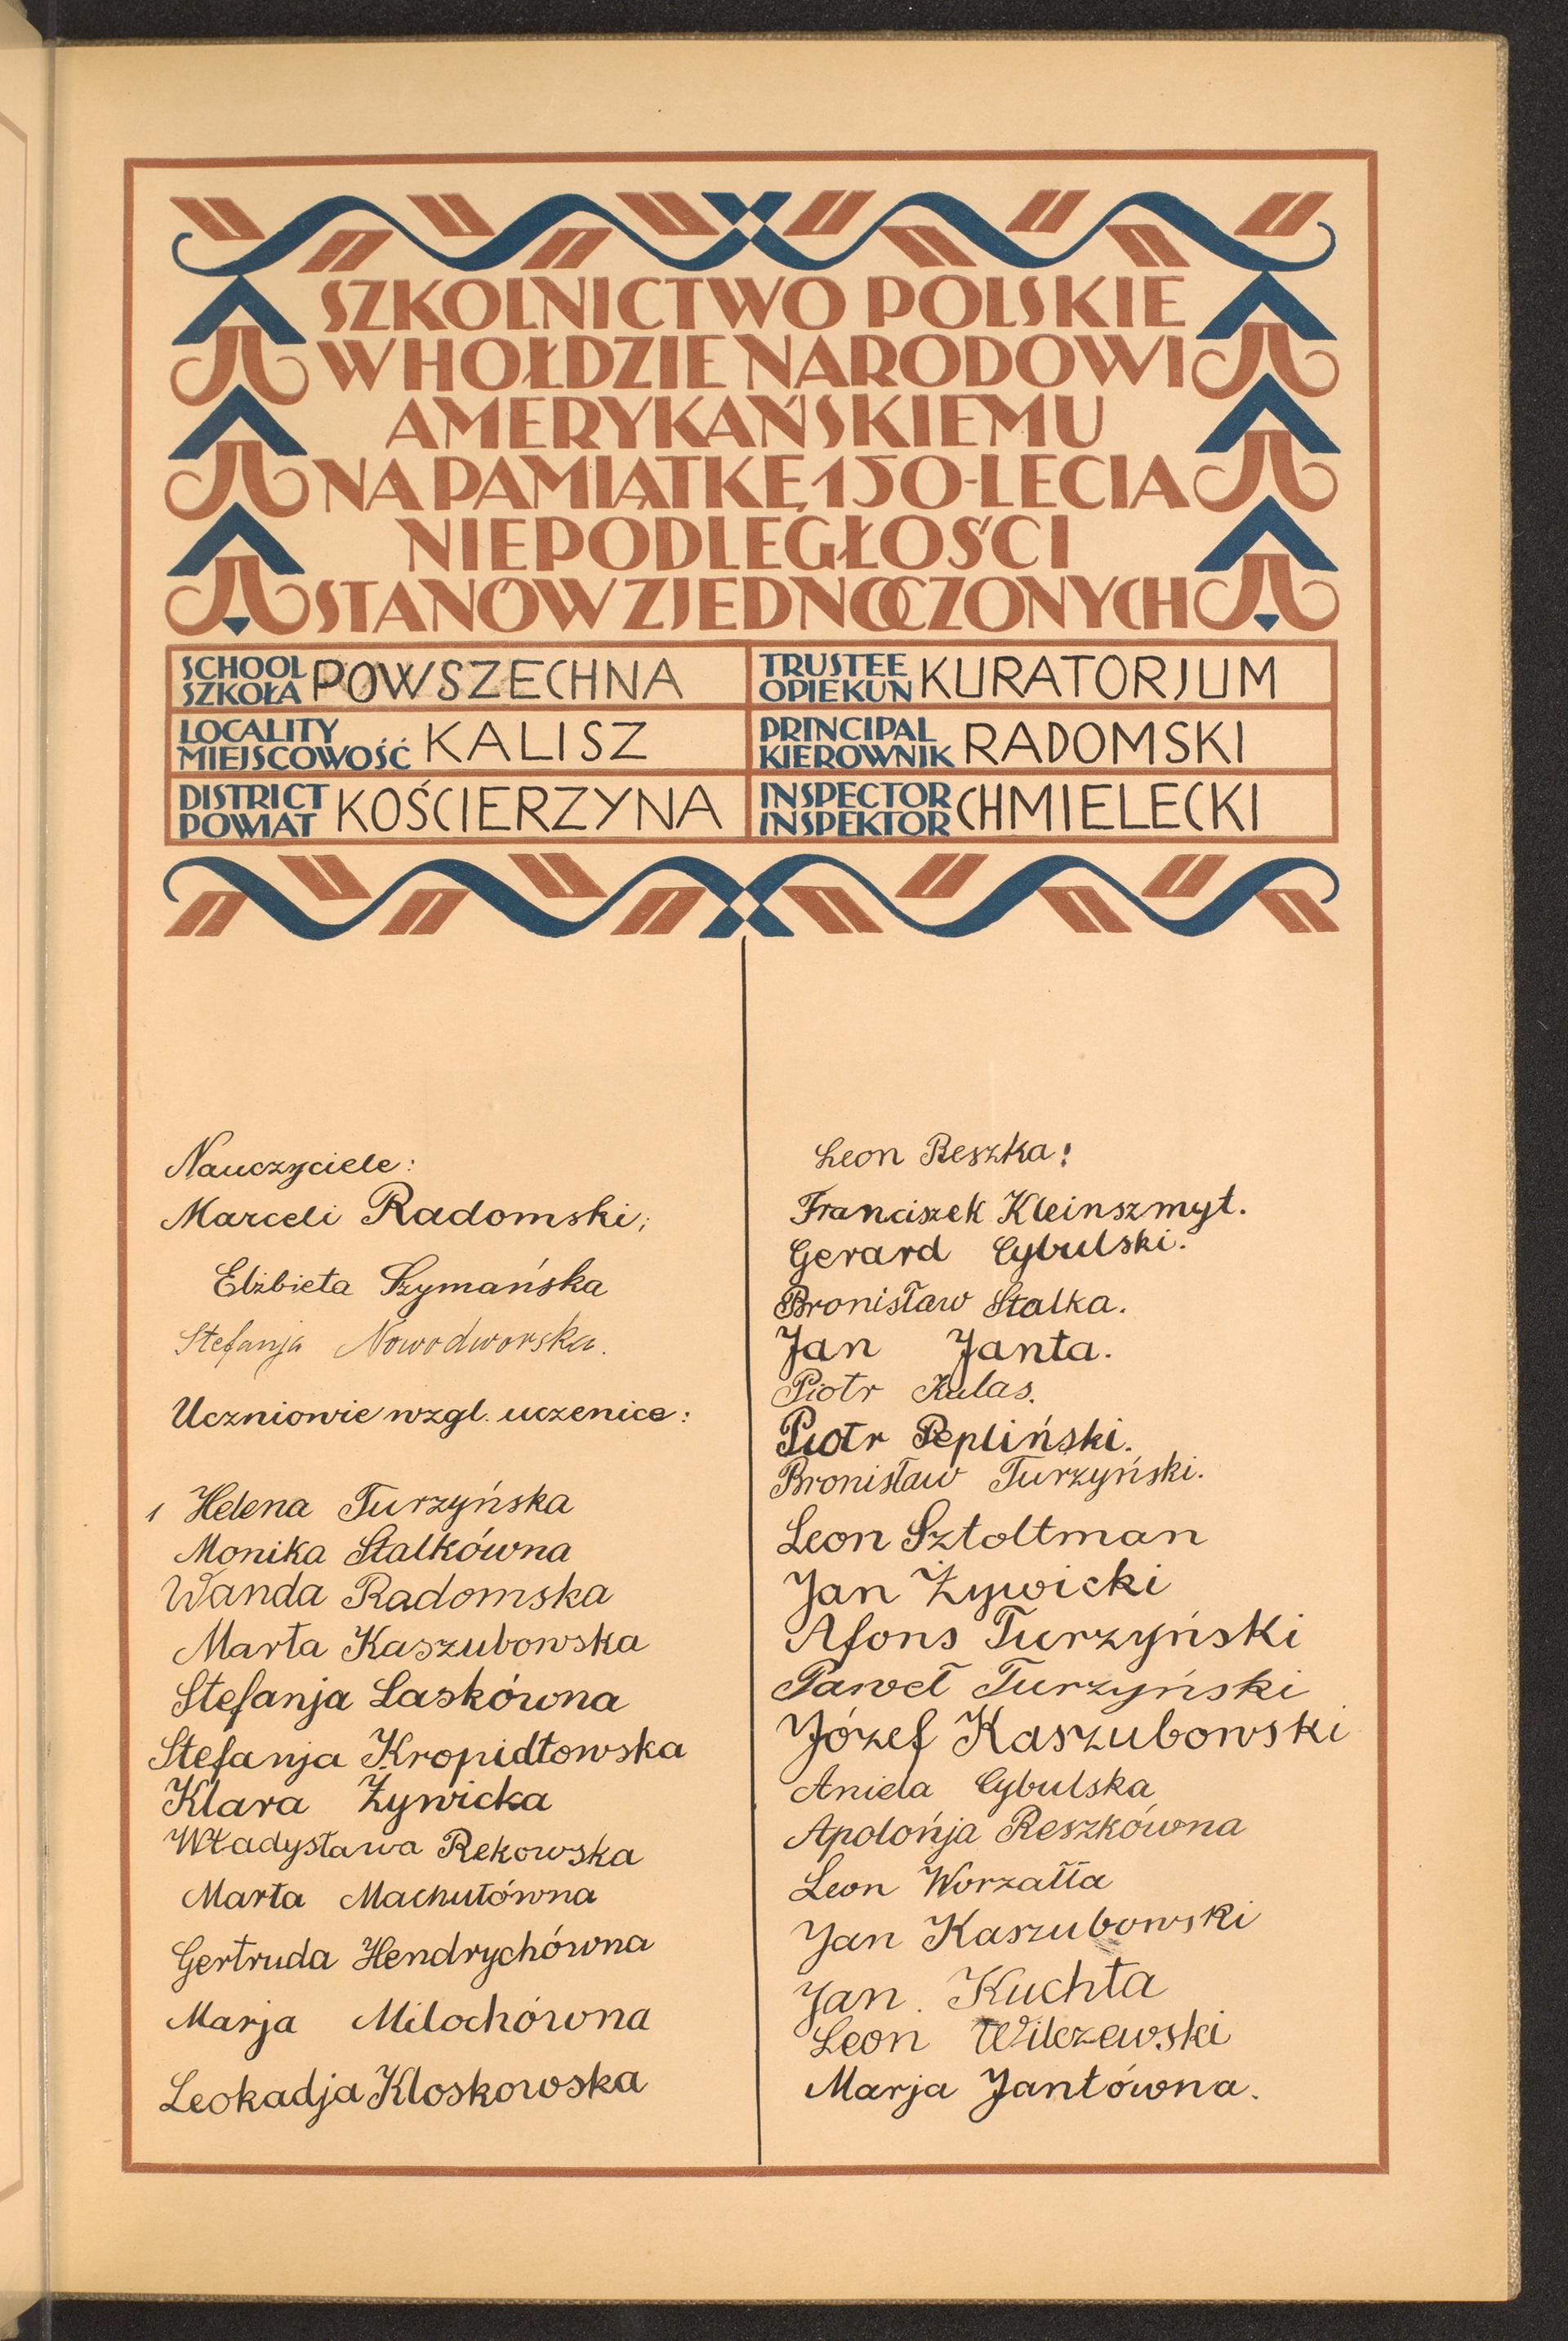 SZKOLNICTWO POLSKIE
W HOŁDZIE NARODOWI
AMERYKAŃSKIEMU
NA PAMIĄTKĘ 150-LECIA
NIEPODLEGŁOŚCI
STANÓW ZJEDNOCZONYCH
SCHOOL
SZKOŁA POWSZECHNA
TRUSTEE
OPIEKUN KURATORJUM
LOCALITY
MIEJSCOWOŚĆ KALISZ
PRINCIPAL
KIEROWNIK RADOMSKI
DISTRICT
POWIAT KOŚCIERZYNA
INSPECTOR
INSPEKTOR CHMIELECKI
Nauczyciele:
Marceli Radomski;
Elżbieta Szymańska
Stefanja Nowodworska.
Uczniowie wzgl. uczenice:
1 Helena Turzyńska
Monika Stalkówna
Wanda Radomska
Marta Kaszubowska
Stefanja Laskówna
Stefanja Kropidłowska
Klara Żywicka
Władysława Rekowska
Marta Machutówna
Gertruda Hendrychówna
Marja Milochówna
Leokadja Kloskowska
Leon Reszka!
Franciszek Kleinszmyt.
Gerard Cybulski.
Bronisław Stalka.
Jan Janta.
Piotr Kulas.
Piotr Pepliński.
Bronisław Turzyński.
Leon Sztoltman
Jan Żywicki
Afons Turzyński
Paweł Turzyński
Józef Kaszubowski
Aniela Cybulska
Apolońja Reszkówna
Leon Worzałła
Jan Kaszubowski
Jan. Kuchta
Leon Wilczewski
Marja Jantówna.